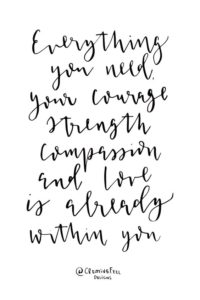 Everything
you need,
your courage
strength
compassion
and love
is already
within you